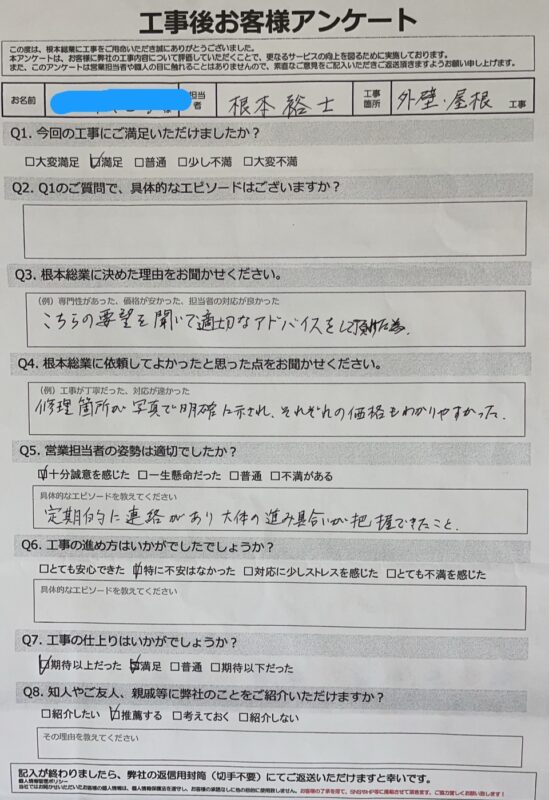 工事後お客様アンケート
この度は、根本総業に工事をご用命いただき誠にありがとうございました。
本アンケートは、お客様に弊社の工事内容について評価していただくことで、更なるサービスの向上を図るために実施しております。
また、このアンケートは営業担当者や職人の目に触れることはありませんので、素直なご意見をご記入いただきご返送頂きますようお願い申し上げます。
お名前 様 担当者 根本 裕士 工事箇所 外壁・屋根 工事
Q1. 今回の工事にご満足いただけましたか?
□大変満足 ☑満足 □普通 □少し不満 □大変不満
Q2. Q1のご質問で、具体的なエピソードはございますか?
Q3. 根本総業に決めた理由をお聞かせください。
(例)専門性があった、価格が安かった、担当者の対応が良かった
こちらの要望を聞いて適切なアドバイスをして頂けた為.
Q4. 根本総業に依頼してよかったと思った点をお聞かせください。
(例)工事が丁寧だった、対応が速かった
修理箇所が写真で明確に示され、それぞれの価格もわかりやすかった.
Q5. 営業担当者の姿勢は適切でしたか?
☑十分誠意を感じた □一生懸命だった □普通 □不満がある
具体的なエピソードを教えてください
定期的に連絡があり大体の進み具合いが把握できたこと.
Q6. 工事の進め方はいかがでしたでしょうか?
□とても安心できた ☑特に不安はなかった □対応に少しストレスを感じた □とても不満を感じた
具体的なエピソードを教えてください
Q7. 工事の仕上りはいかがでしょうか?
☑期待以上だった ☑満足 □普通 □期待以下だった
Q8. 知人やご友人、親戚等に弊社のことをご紹介いただけますか?
□紹介したい ☑推薦する □考えておく □紹介しない
その理由を教えてください
記入が終わりましたら、弊社の返信用封筒(切手不要)にてご返送いただけますと幸いです。
個人情報管理ポリシー
当社ではお聞かせいただいたお客様の個人情報は、個人情報保護法を遵守し、お客様の承諾なしに他の目的に使用致しません。お客様の了承を得て、SNSやHP等に掲載させて頂きます。ご協力宜しくお願い致します!